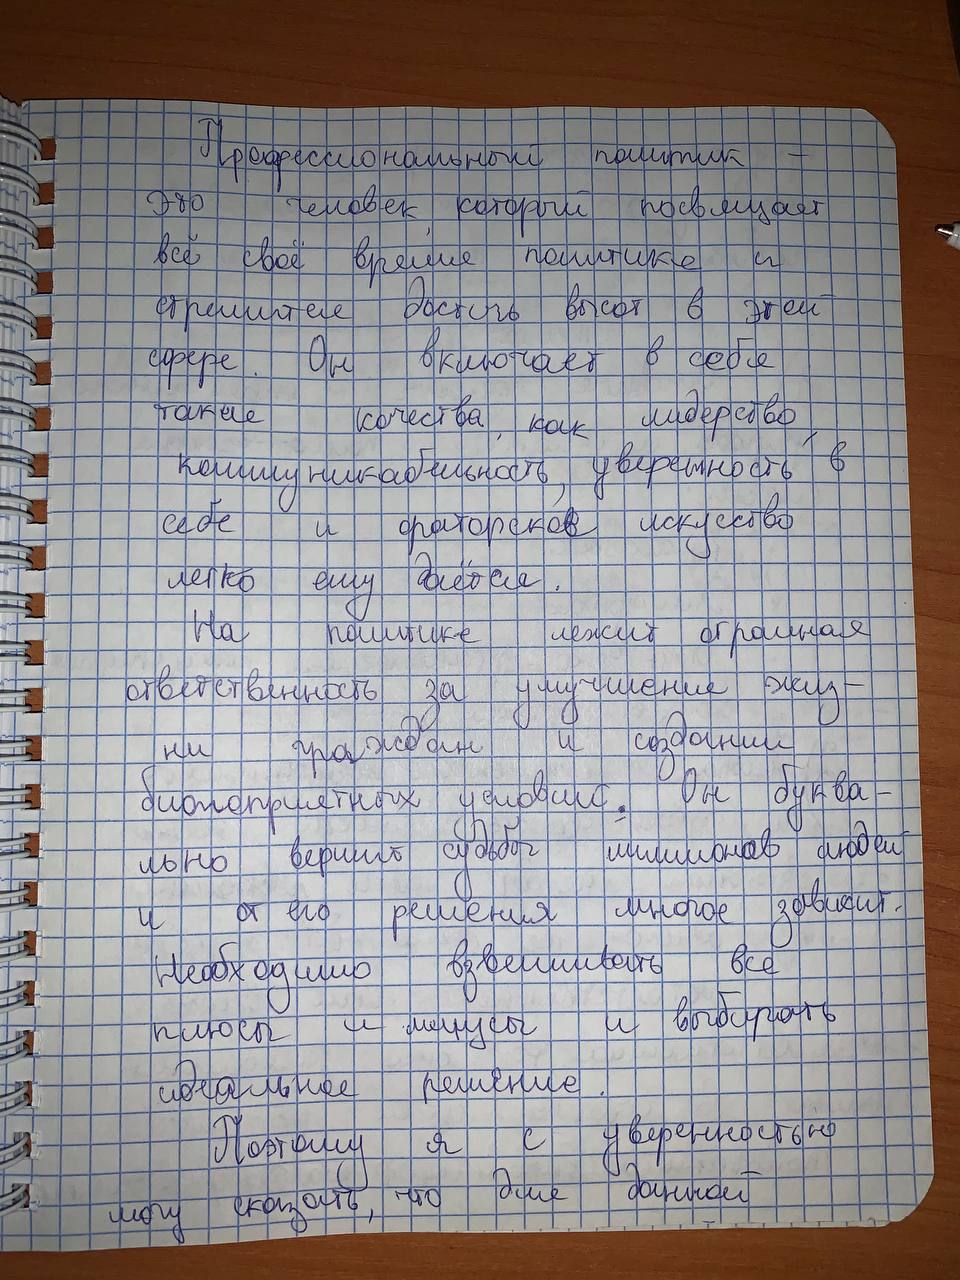 Профессиональный политик –
это человек, который посвящает
всё своё время политике и
стремится достичь высот в этой
сфере. Он включает в себя
такие качества, как лидерство,
коммуникабельность, уверенность в
себе и ораторское искусство
легко ему даётся.
На политике лежит огромная
ответственность за улучшение жиз-
ни граждан и создании
благоприятных условий. Он буква-
льно вершит судьбы миллионов людей
и от его решения многое зависит.
Необходимо взвешивать все
плюсы и минусы и выбирать
идеальное решение.
Поэтому я с уверенностью
могу сказать, что для данной